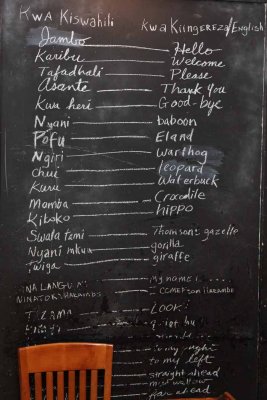 Kwa Kiswahili Kwa Kiingereza/English
Jambo Hello
Karibu Welcome
Tafadhali Please
Asante Thank you
Kwa heri Good-bye
Nyani baboon
Pofu Eland
Ngiri Warthog
chui leopard
Kuru Waterbuck
Mamba Crocodile
Kiboko hippo
Swala tomi Thomson's gazelle
Nyani mkuu gorilla
Twiga giraffe
my name is....
I come from
LOOK!
quiet
to my right
to my left
straight ahead
far ahead